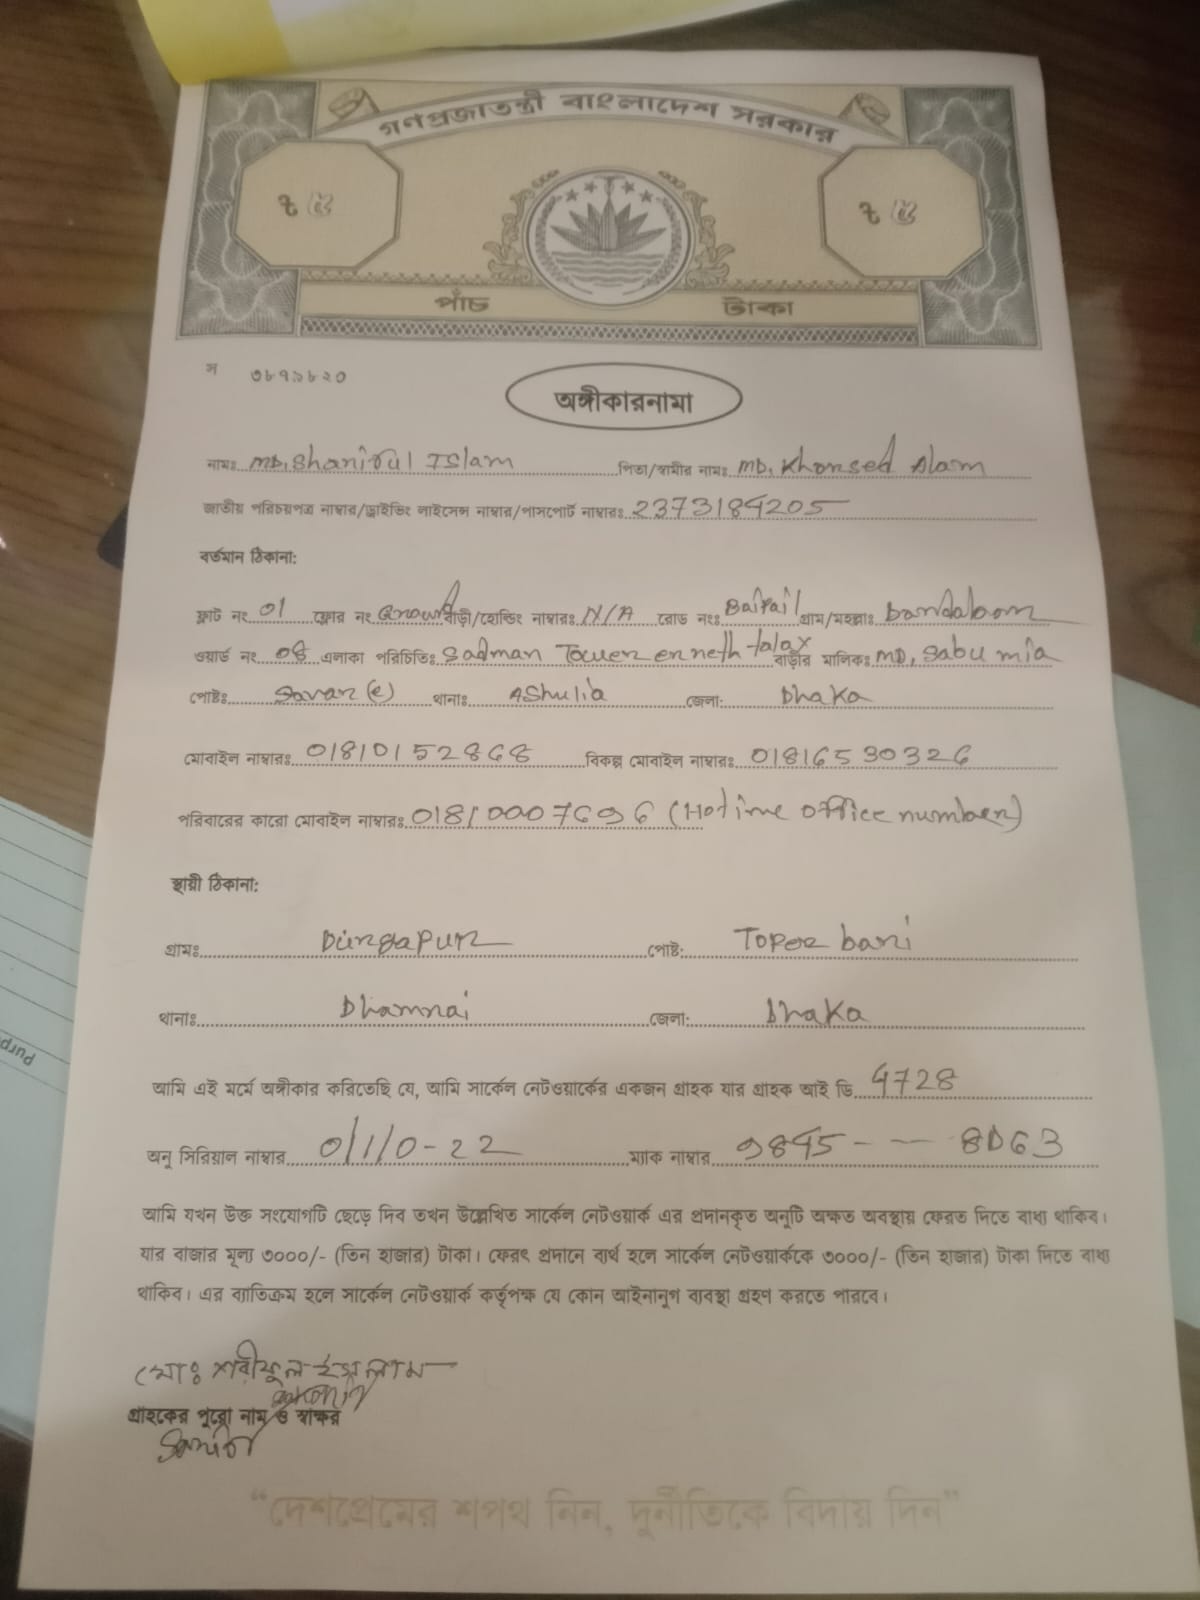 গণপ্রজাতন্ত্রী বাংলাদেশ সরকার
৳ ৫ ৳ ৫
পাঁচ টাকা
স ৩৮৭৯৮২০
অঙ্গীকারনামা
নামঃ MD, Shariful Islam পিতা/স্বামীর নামঃ MD, Khorsed Alam
জাতীয় পরিচয়পত্র নাম্বার/ড্রাইভিং লাইসেন্স নাম্বার/পাসপোর্ট নাম্বারঃ 2373184205
বর্তমান ঠিকানা:
ফ্লাট নং 01 ফ্লোর নং Ground বাড়ী/হোল্ডিং নাম্বারঃ N/A রোড নংঃ Baipail গ্রাম/মহল্লাঃ
ওয়ার্ড নং 08 এলাকা পরিচিতিঃ Sadman Tower বাড়ীর মালিকঃ MD, Sabu mia
পোষ্টঃ Savar (c) থানাঃ AShulia জেলা: Dhaka
মোবাইল নাম্বারঃ 01810152868 বিকল্প মোবাইল নাম্বারঃ 01816530326
পরিবারের কারো মোবাইল নাম্বারঃ 01810007696 (Hotline office number)
স্থায়ী ঠিকানা:
গ্রামঃ Durgapur পোষ্ট: Topor bari
থানাঃ Dhamrai জেলা: Dhaka
আমি এই মর্মে অঙ্গীকার করিতেছি যে, আমি সার্কেল নেটওয়ার্কের একজন গ্রাহক যার গ্রাহক আই ডি 4728
অনু সিরিয়াল নাম্বার 0/1/0-22 ম্যাক নাম্বার 9845 - - 8D63
আমি যখন উক্ত সংযোগটি ছেড়ে দিব তখন উল্লেখিত সার্কেল নেটওয়ার্ক এর প্রদানকৃত অনুটি অক্ষত অবস্থায় ফেরত দিতে বাধ্য থাকিব।
যার বাজার মূল্য ৩০০০/- (তিন হাজার) টাকা। ফেরৎ প্রদানে ব্যর্থ হলে সার্কেল নেটওয়ার্ককে ৩০০০/- (তিন হাজার) টাকা দিতে বাধ্য
থাকিব। এর ব্যতিক্রম হলে সার্কেল নেটওয়ার্ক কর্তৃপক্ষ যে কোন আইনানুগ ব্যবস্থা গ্রহণ করতে পারবে।
মোঃ শরীফুল ইসলাম
গ্রাহকের পুরো নাম ও স্বাক্ষর
“দেশপ্রেমের শপথ নিন, দুর্নীতিকে বিদায় দিন”